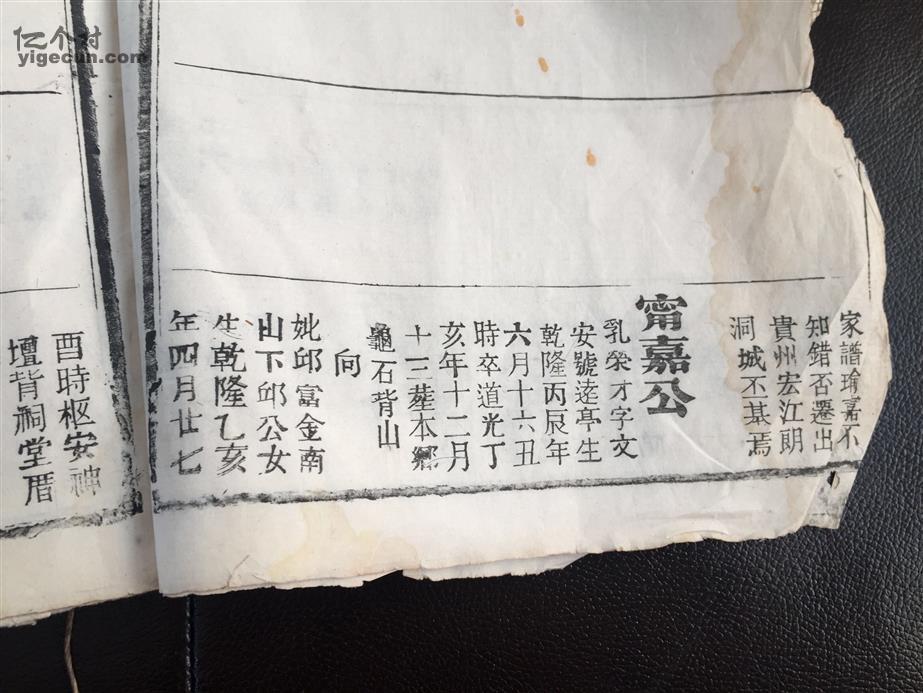 亿个村
yigecun.com
家譜瑜嘉不
知錯否遷出
貴州宏江朗
洞城丕基焉
甯嘉公
乳榮才字文
安號逵亭生
乾隆丙辰年
六月十六丑
時卒道光丁
亥年十二月
十三葬本鄉
龜石背山
向
妣邱富金南
山下邱公女
生乾隆乙亥
年四月廿七
酉時柩安神
壇背祠堂厝